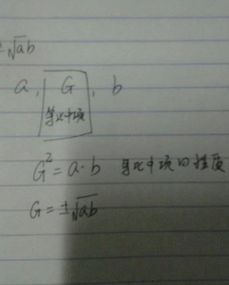 ±√ab
a, G, b
等比中项
G² = a·b 等比中项的性质
G = ±√ab